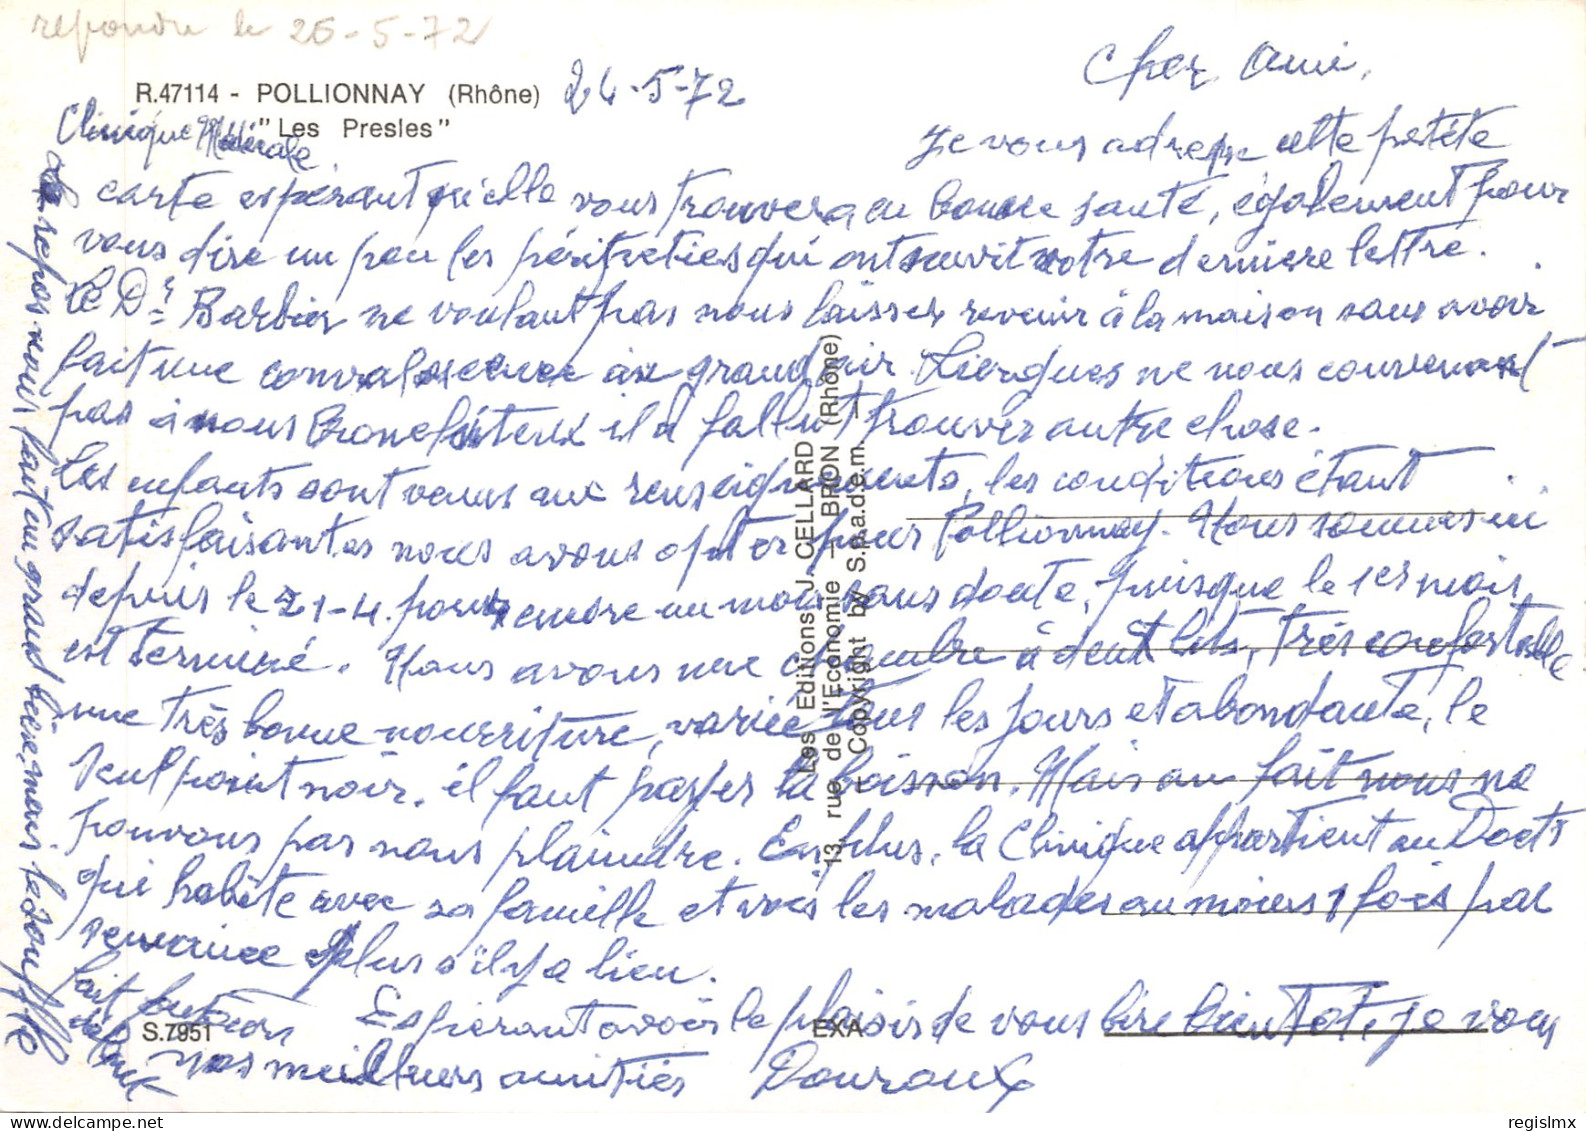 repondu le 26-5-72
R.47114 - POLLIONNAY (Rhône) 24-5-72
"Les Presles"
Clinique Médicale
Cher Ami,
Je vous adresse cette petite
carte espérant qu'elle vous trouvera en bonne santé, également pour
vous dire un peu les péripeties qui ont suivit notre derniere lettre.
Le Dr Barbier ne voulant pas nous laisser revenir à la maison sans avoir
fait une convalescence au grand air. Liergues ne nous convenant
pas à nous bronchiteux il a fallut trouver autre chose.
Les enfants sont venus aux renseignements, les conditions étant
satisfaisantes nous avons opter pour Pollionnay. Nous sommes ici
depuis le 21-4. pour encore un mois sans doute, puisque le 1er mois
est terminé. Nous avons une chambre à deux lits, très confortable
une très bonne nourriture, variée tous les jours et abondante, le
seul point noir, il faut payer la boisson. Mais au fait nous ne
pouvons pas nous plaindre. En plus, la Clinique appartient au Doct
qui habite avec sa famille et vois les malades au moins 1 fois par
semaine et plus s'il y a lieu.
Espérant avoir le plaisir de vous lire bientôt, je vous
fait
nos meilleurs amitiés Douroux
le repos nous fait un grand bien, mais
Les Editions J. CELLARD
13, rue de l'Economie - BRON (Rhône)
- Copyright by S.p.a.d.e.m. -
S.7951
EXA
regislmx